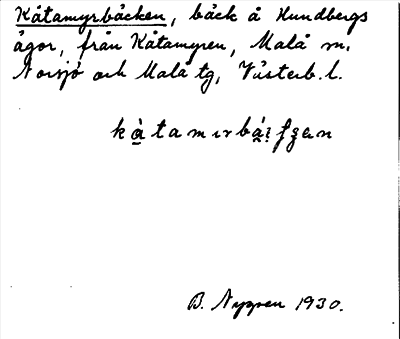 Kåtamyrbäcken, bäck å Hundbergs
ägor, från Kåtamyren, Malå m,
Norsjö och Malå tg, Västerb. l.
B. Nyppen 1930.